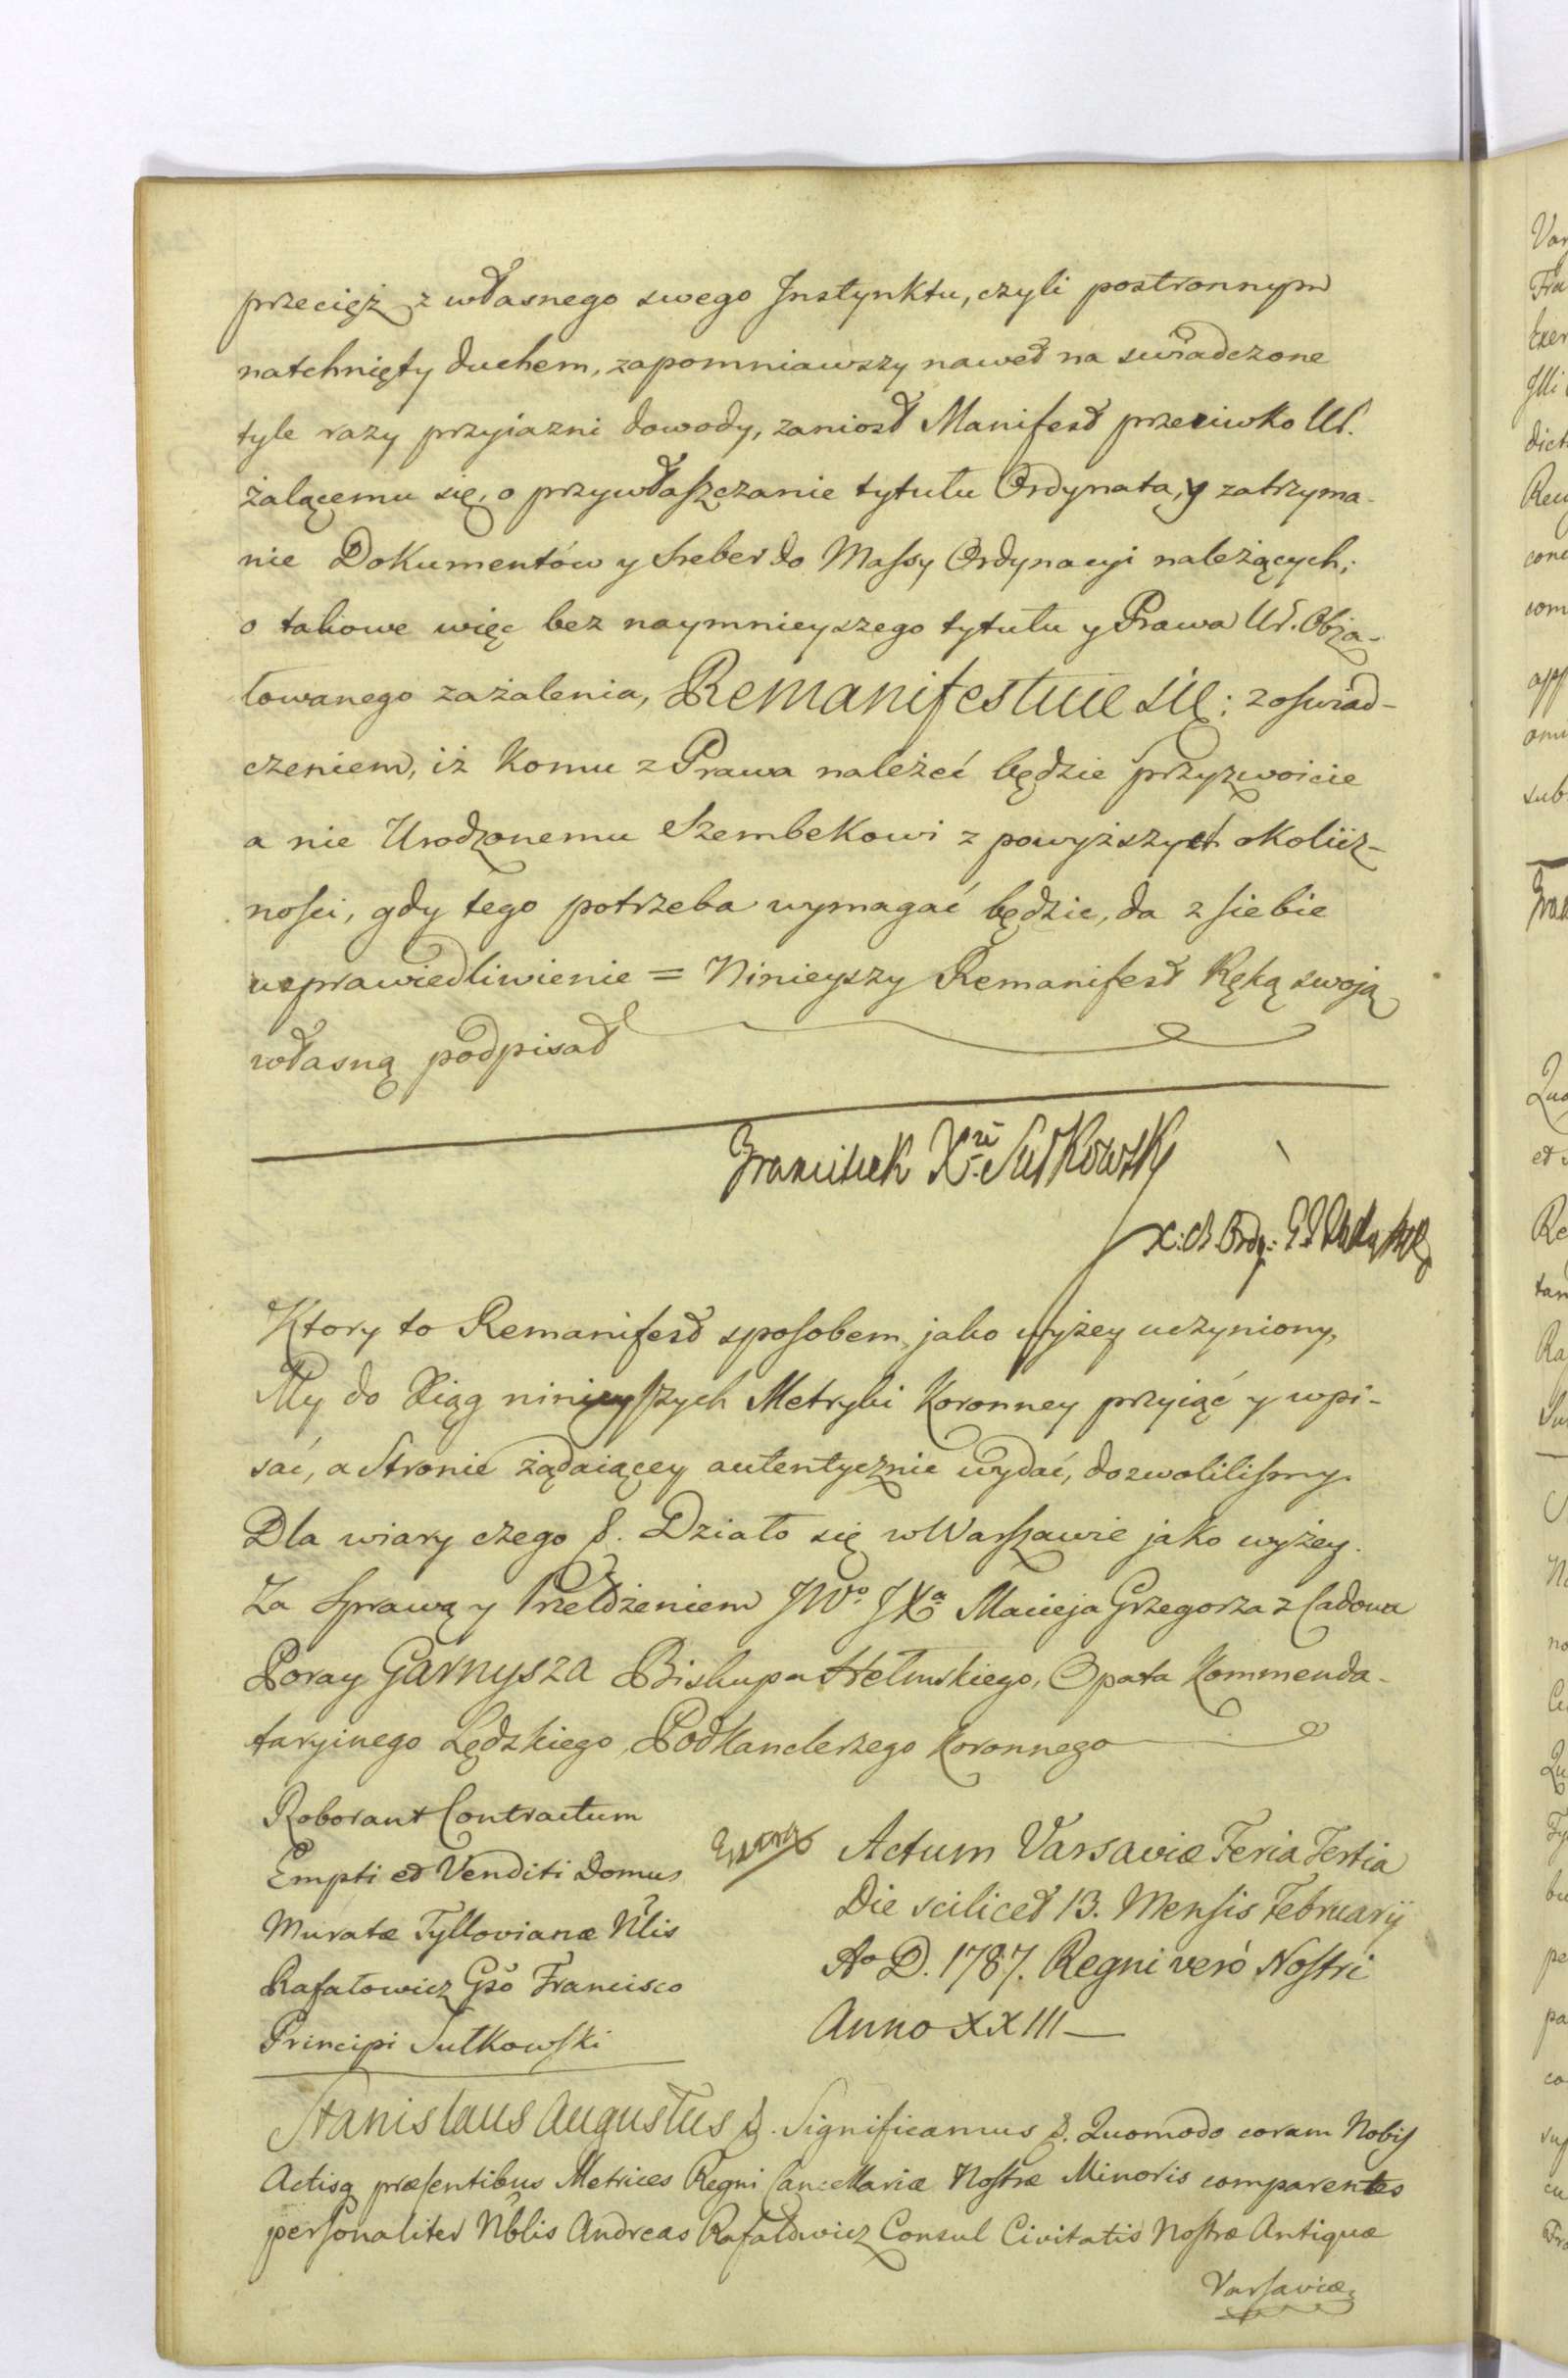 przecięż z własnego swego Jnstynktu, czyli postronnym
natchnięty duchem, zapomniawszy nawet na swiadczone
tyle razy przyiazni dowody, zaniosł Manifest przeciwko Ur.
żalącemu się, o przywłaszczanie tytułu Ordynata, y zatrzyma-
nie Dokumentów y Sreber do Massy Ordynacyi należących;
o takowe więc bez naymnieyszego tytułu y Prawa Ur. Obża-
łowanego zażalenia, Remanifestuie się: z oswiad-
czeniem, iż komu z Prawa należeć będzie przyzwoicie
a nie Urodzonemu Szembekowi z powyższych okolicz-
nosci, gdy tego potrzeba wymagać będzie, da z siebie
usprawiedliwienie = Ninieyszy Remanifest Ręką swoją
własną podpisał
Franciszek Xże Sułkowsky
Ktory to Remanifest sposobem jako wyżey uczyniony,
My do Xiąg ninieyszych Metryki Koronney przyiąć y wpi-
sać, a Stronie żądaiącey autentycznie wydać, dozwolilismy.
Dla wiary czego &. Działo się w Warszawie jako wyżey.
Za Sprawą y Przełożeniem JWo. JXa Macieja Grzegorza z Ładowa
Poray Garnysza Biskupa Hełmskiego, Opata Kommenda-
taryinego Lędzkiego, Podkanclerzego Koronnego
Roborant Contractum
Empti et Venditi Domus
Muratæ Tyllovianæ Nlis
Rafałowicz Gso Francisco
Principi Sułkowski
Actum Varsaviæ Feria Tertia
Die scilicet 13. Mensis February
Ao D. 1787. Regni veró Nostri
Anno XXIII
Stanislaus Augustus &. Significamus &. Quomodo coram Nobis
Actisq præsentibus Metrices Regni Cancellariæ Nostræ Minoris comparentes
personaliter Nblis Andreas Rafałowicz Consul Civitatis Nostræ Antiquæ
Varsaviæ